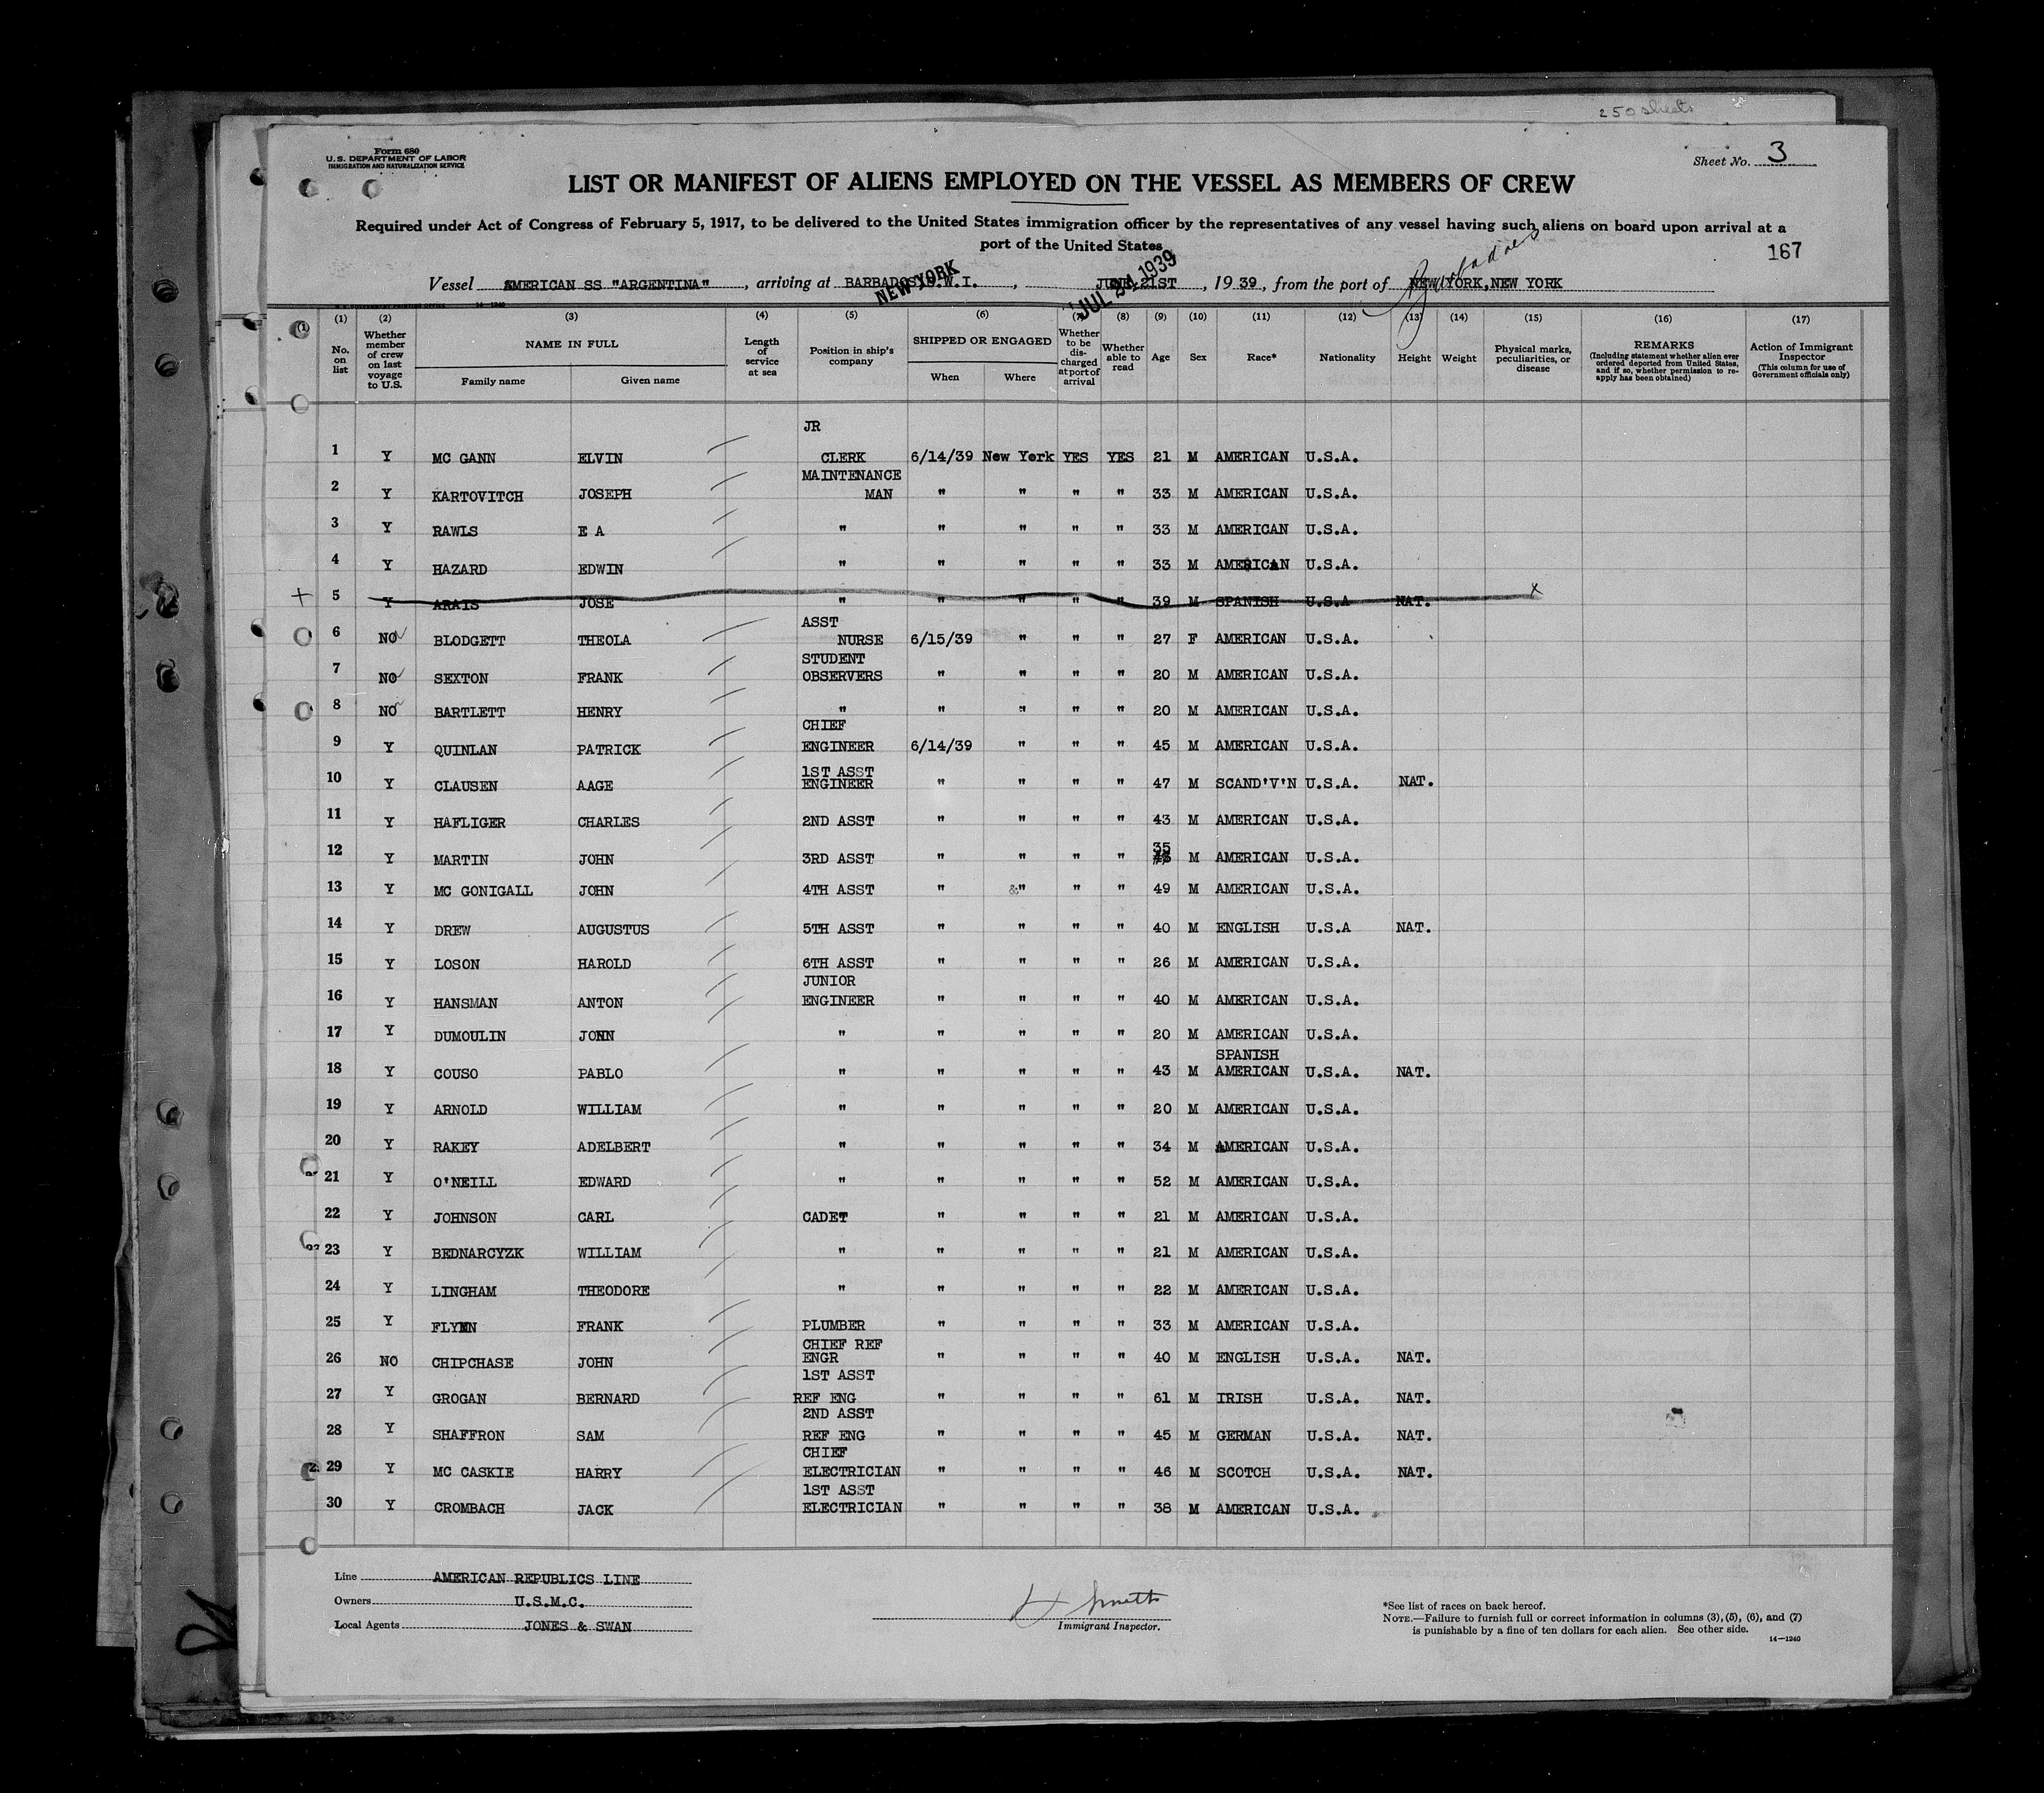 250 sheets
Form 680
U.S. DEPARTMENT OF LABOR
IMMIGRATION AND NATURALIZATION SERVICE
Sheet No. 3
LIST OR MANIFEST OF ALIENS EMPLOYED ON THE VESSEL AS MEMBERS OF CREW
Required under Act of Congress of February 5, 1917, to be delivered to the United States immigration officer by the representatives of any vessel having such aliens on board upon arrival at a
port of the United States
167
Barbadoes
NEW YORK
JUL 24 1939
Vessel AMERICAN SS "ARGENTINA", arriving at BARBADOS B.W.I., JUNE 21ST, 1939, from the port of NEW YORK, NEW YORK
(1) (2) (3) (4) (5) (6) (7) (8) (9) (10) (11) (12) (13) (14) (15) (16) (17)
No. on list Whether member of crew on last voyage to U.S. NAME IN FULL Family name Given name Length of service at sea Position in ship's company SHIPPED OR ENGAGED When Where Whether to be discharged at port of arrival Whether able to read Age Sex Race* Nationality Height Weight Physical marks, peculiarities, or disease REMARKS (Including statement whether alien ever ordered deported from United States, and if so, whether permission to re-apply has been obtained) Action of Immigrant Inspector (This column for use of Government officials only)
JR
1 Y MC GANN ELVIN CLERK 6/14/39 New York YES YES 21 M AMERICAN U.S.A.
MAINTENANCE
2 Y KARTOVITCH JOSEPH MAN " " " " 33 M AMERICAN U.S.A.
3 Y RAWLS E A " " " " " 33 M AMERICAN U.S.A.
4 Y HAZARD EDWIN " " " " " 33 M AMERICAN U.S.A.
+ 5 Y ARAIS JOSE " " " " " 39 M SPANISH U.S.A NAT. x
ASST
6 NO BLODGETT THEOLA NURSE 6/15/39 " " " 27 F AMERICAN U.S.A.
STUDENT
7 NO SEXTON FRANK OBSERVERS " " " " 20 M AMERICAN U.S.A.
8 NO BARTLETT HENRY " " " " " 20 M AMERICAN U.S.A.
CHIEF
9 Y QUINLAN PATRICK ENGINEER 6/14/39 " " " 45 M AMERICAN U.S.A.
1ST ASST
10 Y CLAUSEN AAGE ENGINEER " " " " 47 M SCAND'V'N U.S.A. NAT.
11 Y HAFLIGER CHARLES 2ND ASST " " " " 43 M AMERICAN U.S.A.
12 Y MARTIN JOHN 3RD ASST " " " " 35 M AMERICAN U.S.A.
13 Y MC GONIGALL JOHN 4TH ASST " &" " " 49 M AMERICAN U.S.A.
14 Y DREW AUGUSTUS 5TH ASST " " " " 40 M ENGLISH U.S.A NAT.
15 Y LOSON HAROLD 6TH ASST " " " " 26 M AMERICAN U.S.A.
JUNIOR
16 Y HANSMAN ANTON ENGINEER " " " " 40 M AMERICAN U.S.A.
17 Y DUMOULIN JOHN " " " " " 20 M AMERICAN U.S.A.
SPANISH
18 Y COUSO PABLO " " " " " 43 M AMERICAN U.S.A. NAT.
19 Y ARNOLD WILLIAM " " " " " 20 M AMERICAN U.S.A.
20 Y RAKEY ADELBERT " " " " " 34 M AMERICAN U.S.A.
21 Y O'NEILL EDWARD " " " " " 52 M AMERICAN U.S.A.
22 Y JOHNSON CARL CADET " " " " 21 M AMERICAN U.S.A.
23 Y BEDNARCYZK WILLIAM " " " " " 21 M AMERICAN U.S.A.
24 Y LINGHAM THEODORE " " " " " 22 M AMERICAN U.S.A.
25 Y FLYNN FRANK PLUMBER " " " " 33 M AMERICAN U.S.A.
CHIEF REF
26 NO CHIPCHASE JOHN ENGR " " " " 40 M ENGLISH U.S.A. NAT.
1ST ASST
27 Y GROGAN BERNARD REF ENG " " " " 61 M IRISH U.S.A. NAT.
2ND ASST
28 Y SHAFFRON SAM REF ENG " " " " 45 M GERMAN U.S.A. NAT.
CHIEF
29 Y MC CASKIE HARRY ELECTRICIAN " " " " 46 M SCOTCH U.S.A. NAT.
1ST ASST
30 Y CROMBACH JACK ELECTRICIAN " " " " 38 M AMERICAN U.S.A.
Line AMERICAN REPUBLICS LINE
Owners U.S.M.C.
Local Agents JONES & SWAN
Immigrant Inspector.
*See list of races on back hereof.
NOTE.—Failure to furnish full or correct information in columns (3), (5), (6), and (7)
is punishable by a fine of ten dollars for each alien. See other side.
14—1240